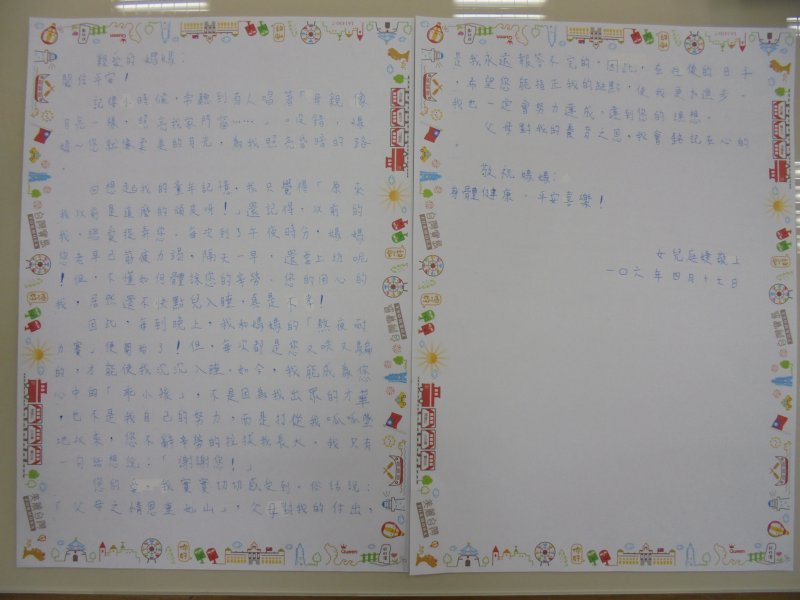 親愛的媽媽：
馨信平安！
記得小時候，常聽到有人唱著「母親像
月亮一樣，照亮我家門窗……」。沒錯，媽
媽～您就像柔美的月光，為我照亮昏暗的路
。
回想起我的童年記憶，我只覺得「原來
我以前是這麼的頑皮呀！」還記得，以前的
我，總愛捉弄您。每次到了午夜時分，媽媽
您老早已筋疲力竭，隔天一早，還要上班呢
！但，不懂如何體諒您的辛勞、您的用心的
我，居然還不快點兒入睡，真是不孝！
因此，每到晚上，我和媽媽的「熬夜耐
力賽」便開始了！但，每次都是您又哄又騙
的，才能使我沉沉入睡。如今，我能成為您
心中的「乖小孩」，不是因為我出眾的才華
，也不是我自己的努力，而是打從我呱呱墜
地以來，您不辭辛勞的拉拔我長大，我只有
一句話想說：「謝謝您！」
您的愛，我實實切切感受到。俗話說：
「父母之情恩重如山」，父母對我的付出，
是我永遠報答不完的，因此，在往後的日子
，希望您能指正我的缺點，使我更加進步。
我也一定會努力達成，達到您的理想。
父母對我的養育之恩，我會銘記在心的
。
敬祝媽媽：
身體健康、平安喜樂！
女兒庭婕敬上
一〇六年四月十七日
台灣寶島
朱麗台灣
Queen